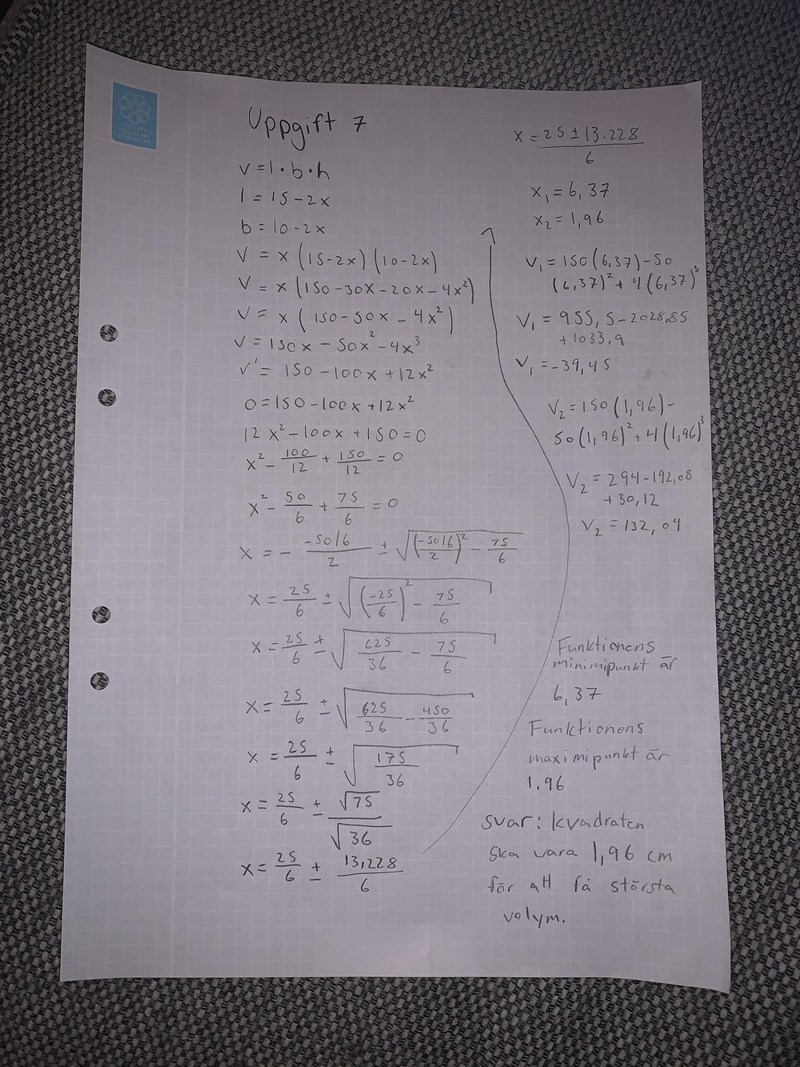 Uppgift 7
V = l · b · h
l = 15 - 2x
b = 10 - 2x
V = x (15-2x) (10-2x)
V = x (150 - 30x - 20x - 4x²)
V = x (150 - 50x - 4x²)
V = 150x - 50x² - 4x³
V' = 150 - 100x + 12x²
0 = 150 - 100x + 12x²
12x² - 100x + 150 = 0
x² - 100/12 + 150/12 = 0
x² - 50/6 + 75/6 = 0
x = - -50/6/2 ± √(-50/6/2)² - 75/6
x = 25/6 ± √(-25/6)² - 75/6
x = 25/6 ± √625/36 - 75/6
x = 25/6 ± √625/36 - 450/36
x = 25/6 ± √175/36
x = 25/6 ± √75/√36
x = 25/6 ± 13,228/6
x = 25 ± 13.228/6
x₁ = 6,37
x₂ = 1,96
V₁ = 150(6,37) - 50
(6,37)² + 4(6,37)³
V₁ = 955,5 - 2028,85
+ 1033,9
V₁ = -39,45
V₂ = 150(1,96) -
50(1,96)² + 4(1,96)³
V₂ = 294 - 192,08
+ 30,12
V₂ = 132,04
Funktionens
minimipunkt är
6,37
Funktionens
maximipunkt är
1.96
svar: kvadraten
ska vara 1,96 cm
för att få största
volym.